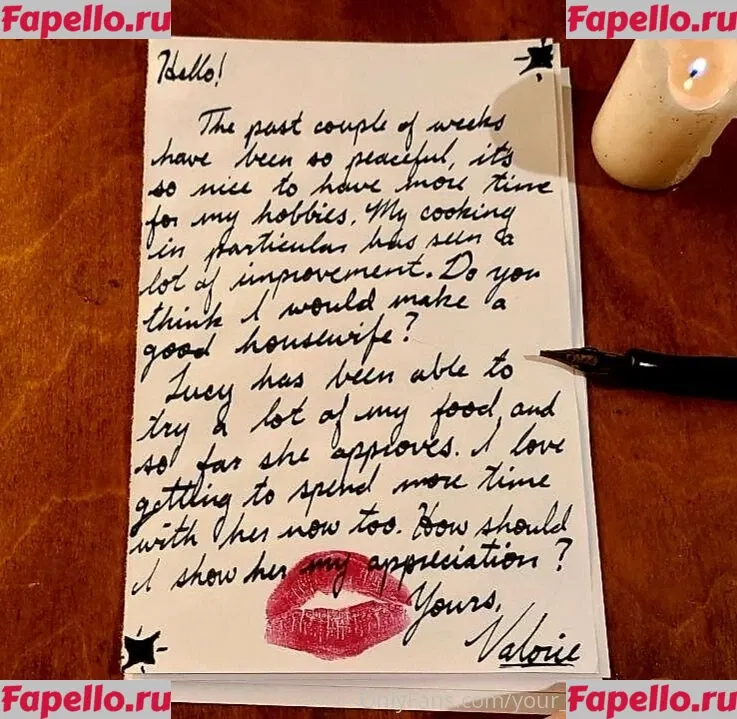 Fapello.ru Fapello.ru
Hello!
The past couple of weeks
have been so peaceful, it's
so nice to have more time
for my hobbies. My cooking
in particular has seen a
lot of improvement. Do you
think I would make a
good housewife?
Lucy has been able to
try a lot of my food, and
so far she approves. I love
getting to spend more time
with her now too. How should
I show her my appreciation?
Yours,
Valorie
onlyfans.com/your
Fapello.ru Fapello.ru